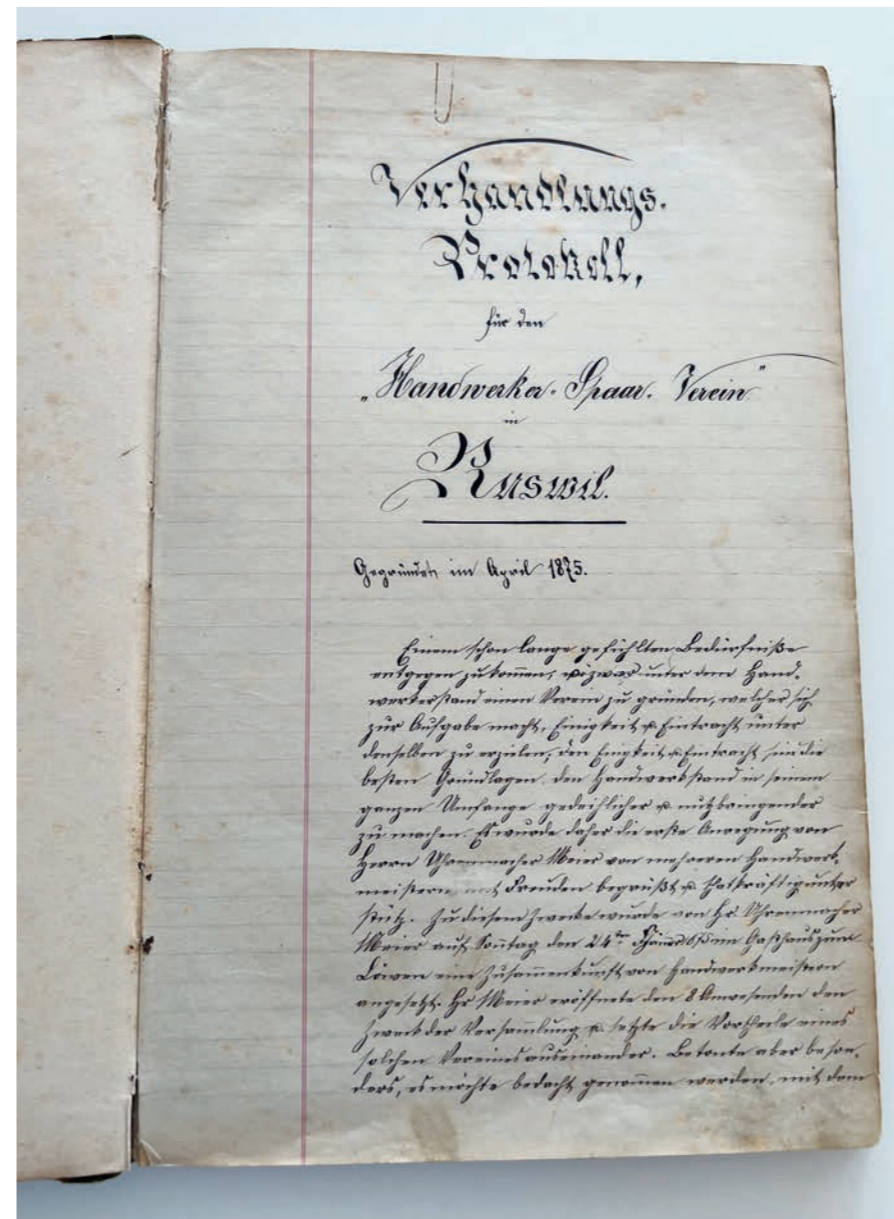 Verhandlungs-
Protokoll,
für den
„Handwerker-Spaar-Verein"
in
Ruswil.
Gegründet im April 1875.
Einem schon lange gefühlten Bedürfniße
entgegen zu kommen, u. zwar unter dem Hand-
werkerstand einen Verein zu gründen, welcher sich
zur Aufgabe macht, Einigkeit u. Eintracht unter
denselben zu erzielen, den Einigkeit u. Eintracht sind die
besten Grundlagen den Handwerkstand in seinem
ganzen Umfange gedeihlicher u. nutzbringender
zu machen. Es wurde daher die erste Anregung von
Herrn Uhrenmacher Meier von mehreren Handwerk-
meistern mit Freuden begrüßt u. thatkräftig unter
stütz. Zu diesem Zwecke wurde von Hr. Uhrenmacher
Meier auf Sontag den 24ten im Gasthaus zum
Löwen eine Zusam̅enkunft von Handwerkmeistern
angesetzt. Hr Meier eröffnete den 8 Anwesenden den
Zweck der Versam̅lung u. setzte die Vortheile eines
solchen Vereines auseinander. Betonte aber beson-
ders, es möchte bedacht genom̅en werden, mit dem